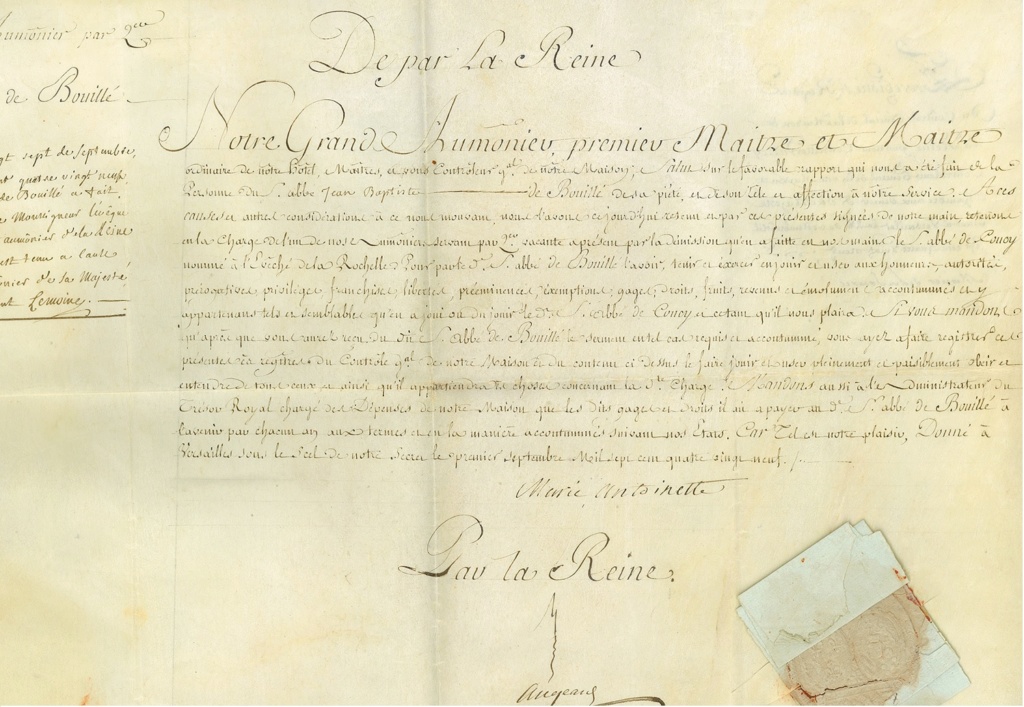 umônier par q.er
de Bouillé
gt sept de septembre,
nt quatre vingt neuf
de Bouillé a fait
e Monseigneur l'évêque
aumônier de la Reine
est tenu a cause
onier de Sa Majesté
Lemoine.
De par La Reine
Notre Grand Aumônier, premier Maitre et Maitre
ordinaire de nôtre hôtel, Maîtres, et vous Contrôleurs g.al de nôtre Maison, Salut sur le favorable rapport qui nous a été fait de la
Personne du S. abbé Jean Baptiste de Bouillé de sa piété et de son zèle et affection à nôtre Service, A ces
causes et autres considérations à ce nous mouvans, nous l'avons ce jourd'hui retenu et par ces présentes signées de notre main, retenons
en la Charge de l'un de nos Aumôniers servant par q.er vacante a présent par la démission qu'en a faitte en nos mains le S. abbé de Coucy
nommé à l'Evêché de la Rochelle, Pour par le d. S. abbé de Bouillé l'avoir, tenir et exercer en jouir et user aux honneurs, autorités,
prérogatives, privilèges, franchises, libertés, prééminences, exemptions, gages, droits, fruits, revenus et émolumens accoutumés et y
appartenans tels et semblables qu'en a joui ou dû jouir le d. S. abbé de Coucy et ce tant qu'il nous plaira. Si vous mandons
qu'après que vous aurez reçu du dit S. abbé de Bouillé le serment en tel cas requis et accoutumé, vous ayez a faire registrer ces
présentes ès registres du Contrôle g.al de notre Maison et du contenu ci dessus le faire jouir et user pleinement et paisiblement obéir et
entendre de tous ceux et ainsi qu'il appartiendra ès choses concernant la d. Charge. Mandons aussi à l'Administrateur du
Trésor Royal chargé des Dépenses de notre Maison que les dits gages et droits il ait a payer au d. S. abbé de Bouillé à
l'avenir par chacun an aux termes et en la manière accoutumés suivant nos états. Car Tel est notre plaisir, Donné à
Versailles sous le Scel de notre Secret le premier septembre Mil sept cent quatre vingt neuf.
Marie Antoinette
Par la Reine.
Augeard